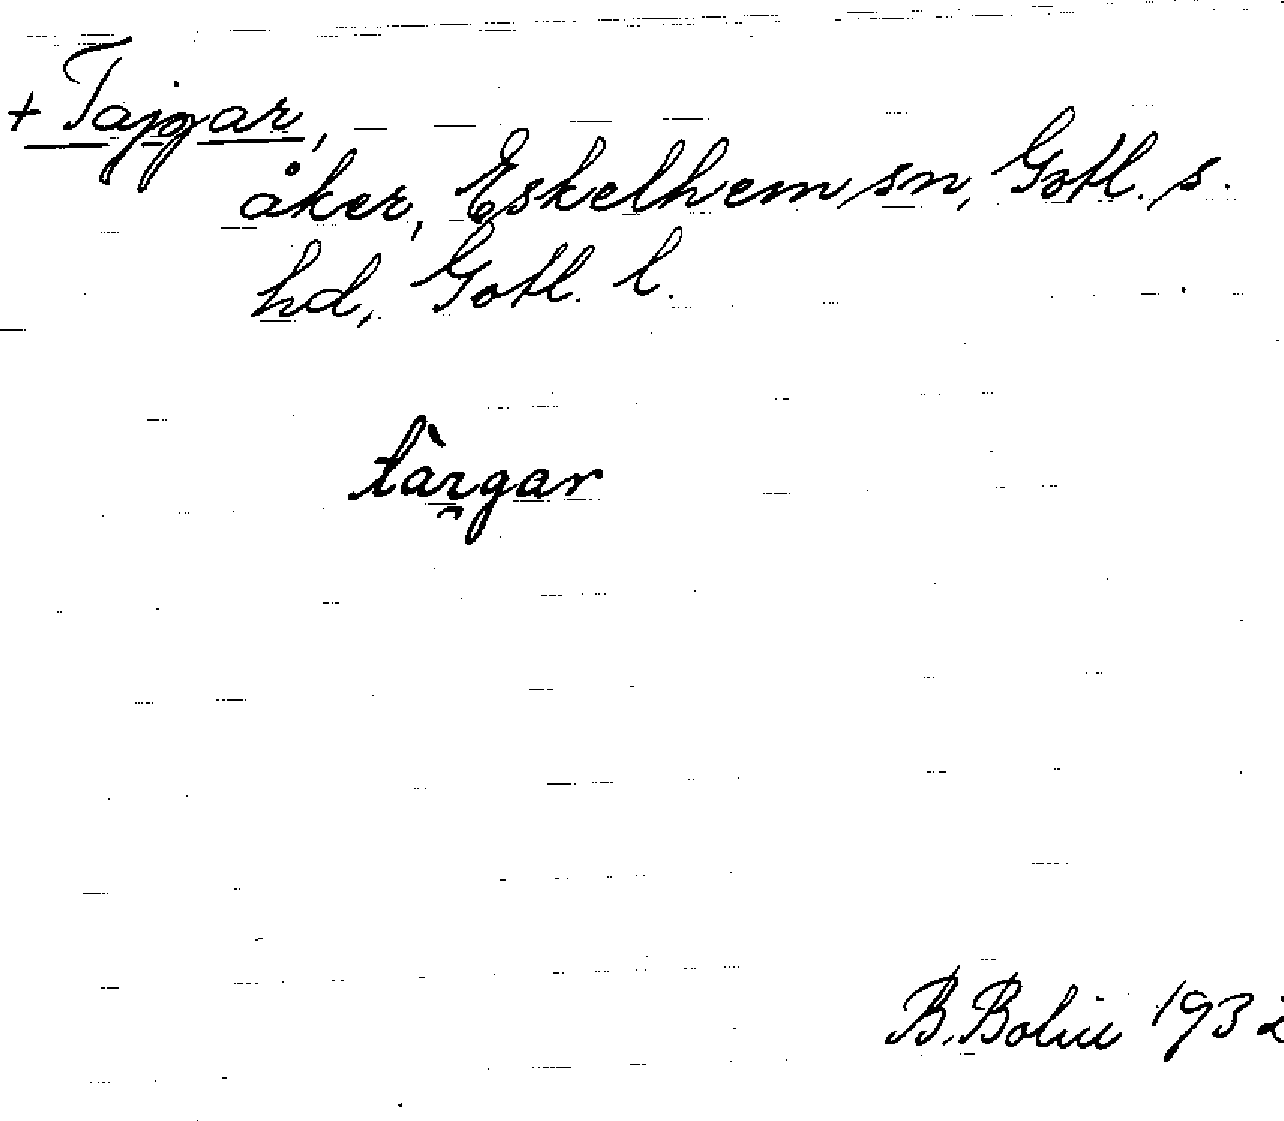 + Tajgar,
åker, Eskelhem sn, Gotl. s.
hd, Gotl. l.
B. Bolin 1932